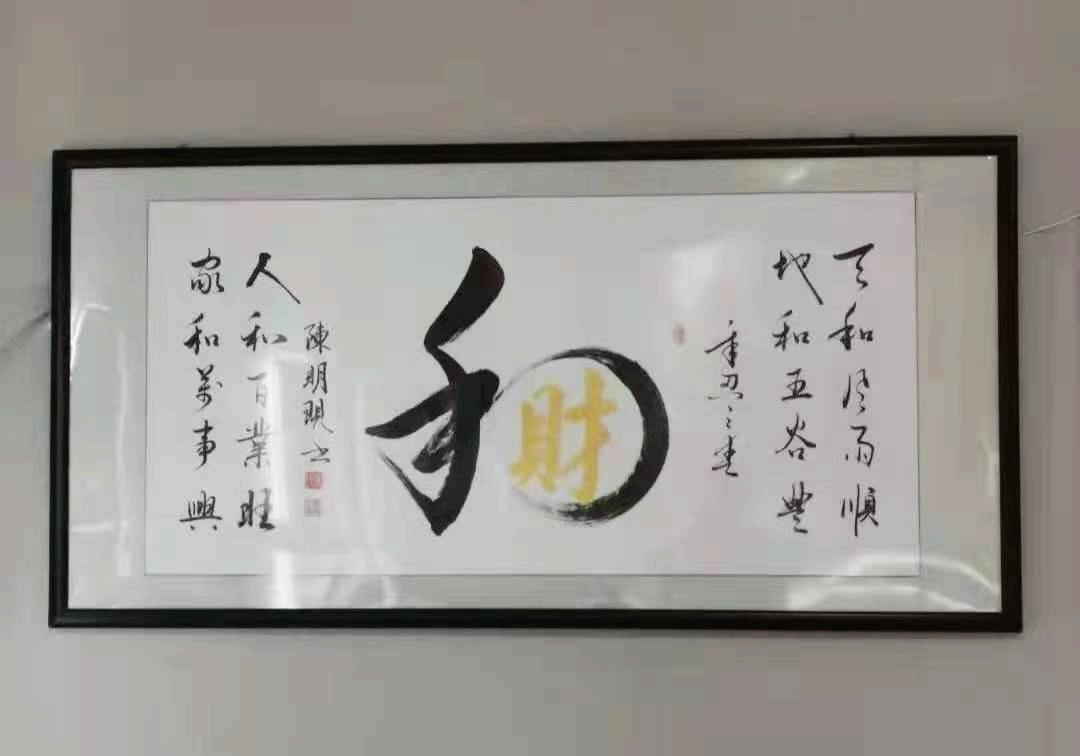 天和风雨順
地和五谷豐
辛丑之春
和
財
陳明現书
人和百業旺
家和萬事興